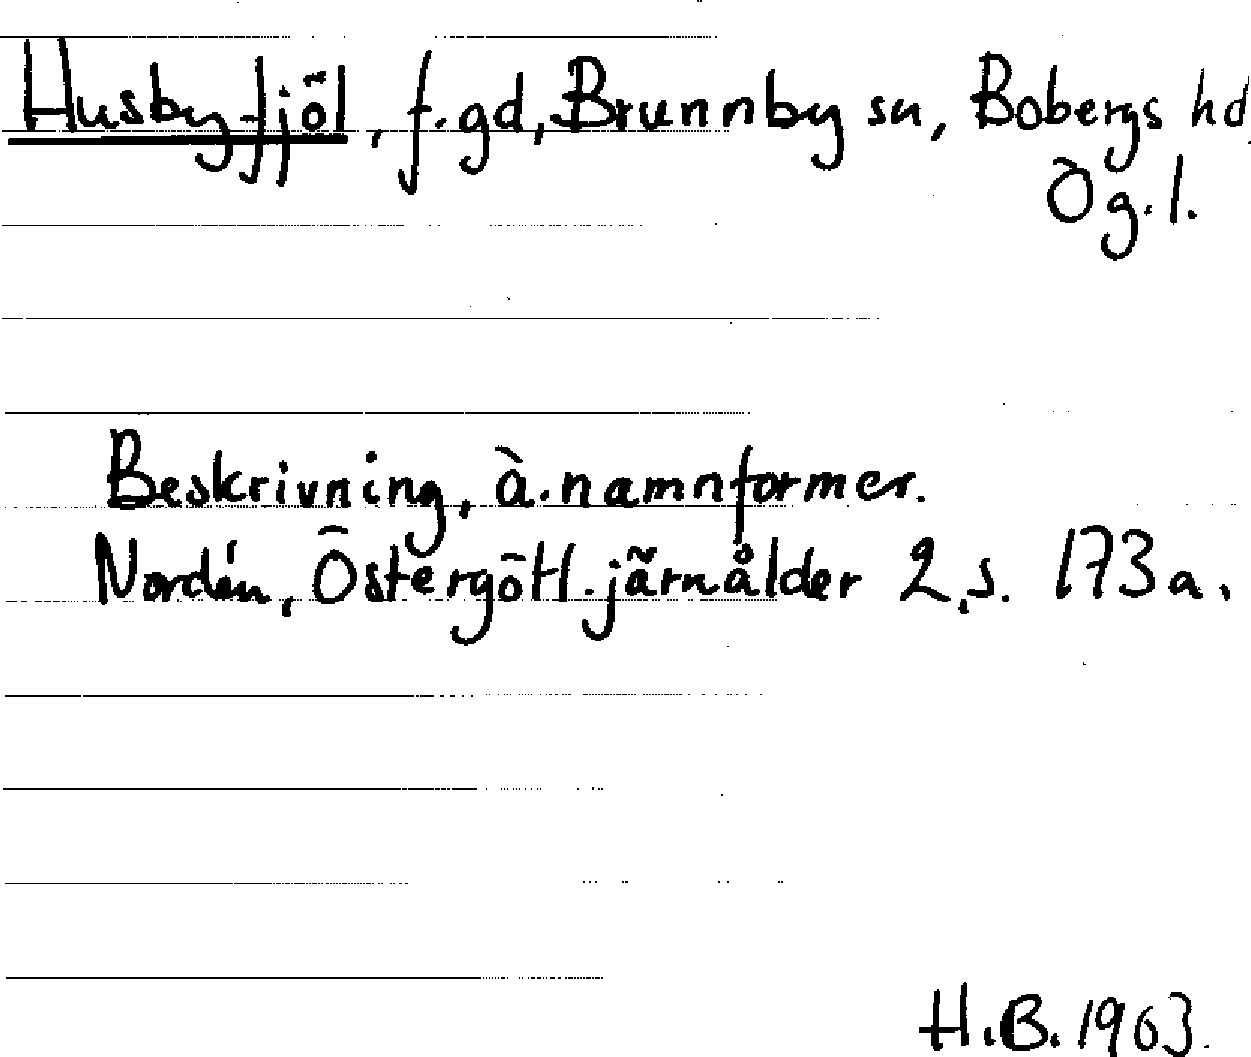 Husbyfjöl, f.gd, Brunnby sn, Bobergs hd
Ög.l.
Beskrivning, ä. namnformer.
Nordén, Östergötl. järnålder 2, s. 173 a.
H.B. 1963.